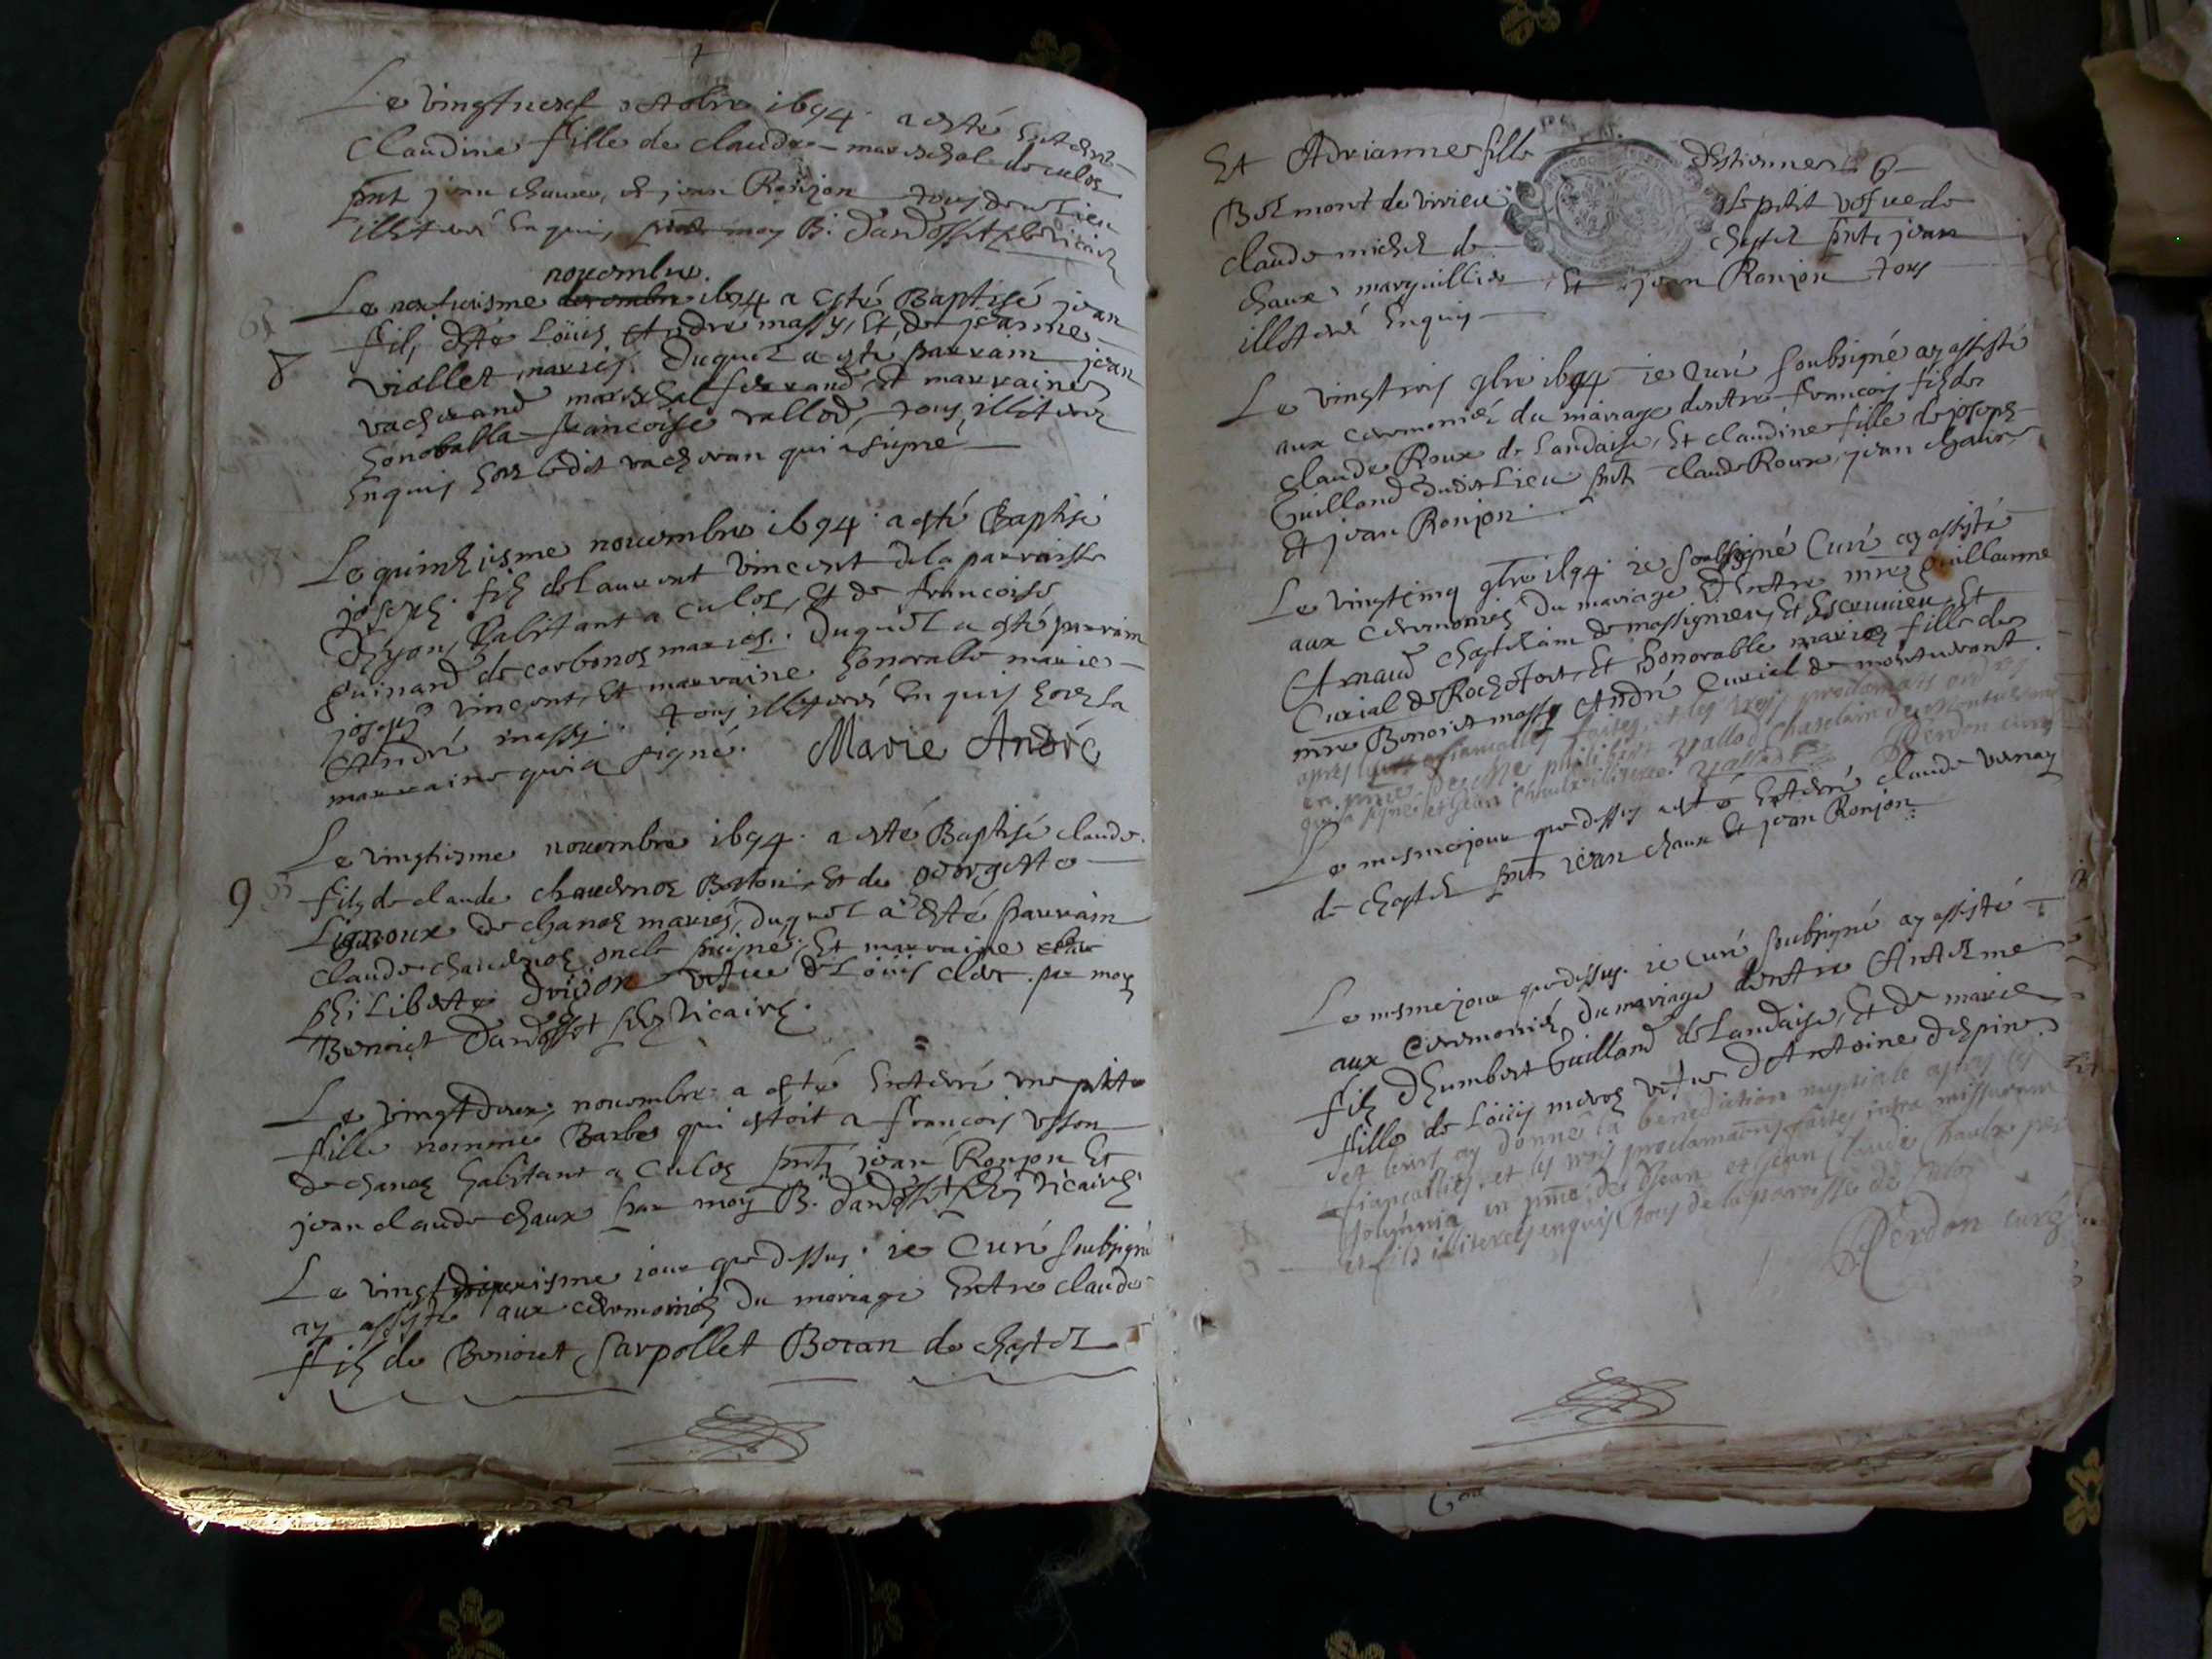 Le vingtneuf octobre 1694 a esté Enterré
Claudine fille de claude mareschal de culos
pnt jean chaux, et jean Ronjon tous dud Lieu
illiterés Enquis, moy B. Dandosset vicaire
novembre
Le neufviesme 1694 a esté Baptisé jean
8
fils de Loüis André massy, Et de jeanne
viollet mariés. Duquel a esté parrain jean
vacherand mareschal ferrand Et marraine
honorable francoise vallod, tous illiterés
Enquis hors ledit vacheran qui a signé
Le quinziesme novembre 1694 a esté Baptisé
joseph fils de Laurent vincent de la parroisse
habitant a culos, Et de francoise
guinard de corbonos mariés. Duquel a esté parrain
joseph vincent, Et marraine honorable marie
André massy tous illiterés Enquis hors la
marraine qui a signé. Marie André
Le vingtiesme novembre 1694 a esté Baptisé claude
9
fils de claude chavernos Et de georgette
Lignoux de chanos mariés, duquel a esté parrain
claude chavernos oncle Et marraine
philiberte vefve de Loüis clerc par moy
Benoict Dandosset vicaire.
Le vingtdeux novembre a esté Enterré une petite
fille nommé Barbe qui estoit a francois
de chanos habitant a Culos pnts jean Ronjon Et
jean claude chaux par moy B. dandosset vicaire
Le jour que dessus ie Curé soubsigné
ay assisté aux ceremonies du mariage Entre claude
fils de Benoict Sarpollet de chastel
Et Adrianne fille d'Estienne
Belmont de virieu le petit vefve de
claude michel de chastel pnts jean
chaux marguillier Et jean Ronjon tous
illiterés Enquis
Le vingtrois 9bre 1694 ie Curé soubsigné ay assisté
aux ceremonies du mariage dentre francois fils de
claude Roux de Landaise, Et claudine fille de joseph
Guilland dudit Lieu pnts claude Roux, jean chaux
Et jean Ronjon.
Le vingtcinq 9bre 1694 ie soubsigné Curé ay assisté
aux ceremonies du mariage dEntre mre guillaume
Arnaud chastelain de massignieu, Et Escrivieu, Et
Curial de Rochefort, Et honorable marie fille de
mre Benoict massy André Curial de montverant.
apres leurs fiancailles faites, et les trois proclamats
en de Me philibert vallod chastelain de
qui a signé et jean Chaulx illiteré. vallod Perdon curé
Le mesme jour que dessus a esté Enterré claude vernay
de chastel pnts jean chaux Et jean Ronjon
Le mesme jour que dessus. ie curé soubsigné ay assisté
aux Ceremonies du mariage dentre Antelme
fils d'humbert Guilland de Landaise, Et de marie
fille de Loüis vefve d'Antoine despine
et leurs ay donné la benediction nuptiale apres les
fiancailles, et les trois proclamations faites intra missarum
solemnia en de jean et jean Claude Chaulx pere
et fils illiterés enquis tous de la paroisse de
Perdon curé